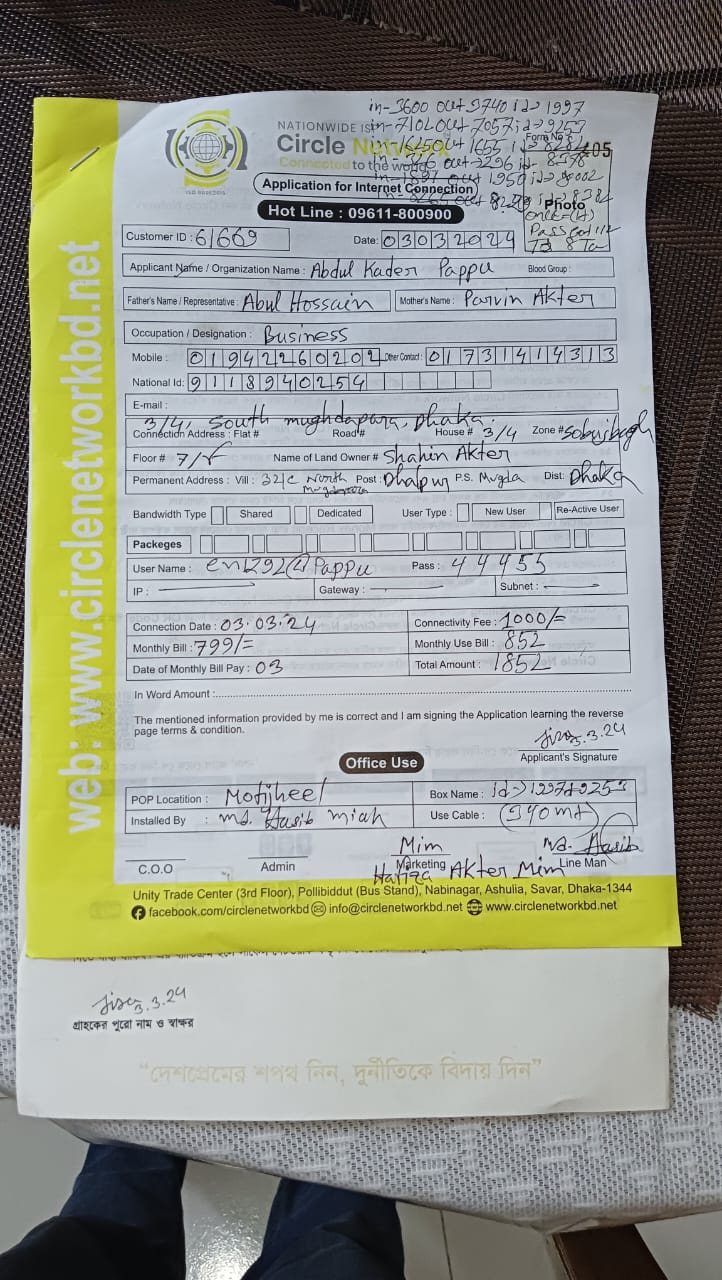 in-3600 out 9740 id→1997
NATIONWIDE ISP
Circle Network
Connected to the world
Form No 405
Application for Internet Connection
Photo
Hot Line : 09611-800900
Customer ID : 61669
Date: 03032024
Applicant Name / Organization Name : Abdul Kader Pappu Blood Group :
Father's Name / Representative : Abul Hossain Mother's Name : Parvin Akter
Occupation / Designation : Business
Mobile : 01942260202 Other Contact : 01731414313
National Id: 9118940254
E-mail :
3/4, South mughdapara, Dhaka.
Connection Address : Flat # Road# House # 3/4 Zone #
Floor # Name of Land Owner # Shahin Akter
Permanent Address : Vill : 32/c North Post : P.S. Mugda Dist: Dhaka
Bandwidth Type Shared Dedicated User Type : New User Re-Active User
Packeges
User Name : Pass : 44455
IP : Gateway : Subnet :
Connection Date : 03.03.24 Connectivity Fee : 1000/=
Monthly Bill : 799/= Monthly Use Bill : 852
Date of Monthly Bill Pay : 03 Total Amount : 1852
In Word Amount :
The mentioned information provided by me is correct and I am signing the Application learning the reverse
page terms & condition.
3.3.24
Applicant's Signature
Office Use
POP Locatition : Motijheel Box Name :
Installed By : md. Hasib miah Use Cable :
Mim Md. Hasib
C.O.O Admin Marketing Line Man
Akter Mim
Unity Trade Center (3rd Floor), Pollibiddut (Bus Stand), Nabinagar, Ashulia, Savar, Dhaka-1344
facebook.com/circlenetworkbd info@circlenetworkbd.net www.circlenetworkbd.net
web: www.circlenetworkbd.net
3.3.24
গ্রাহকের পুরো নাম ও স্বাক্ষর
“দেশপ্রেমের শপথ নিন, দুর্নীতিকে বিদায় দিন”